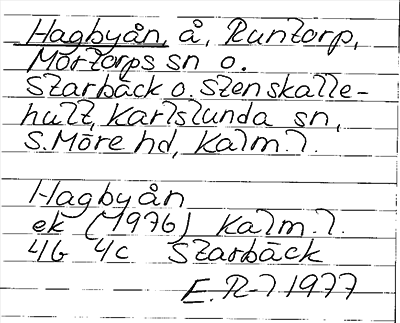 Hagbyån, å, Runtorp,
Mortorps sn o.
Starbäck o. Stenskalle-
hult, Karlslunda sn,
S. Möre hd, Kalm. l.
Hagbyån
ek (1976) Kalm. l.
4G 4c Starbäck
E. R-l 1977